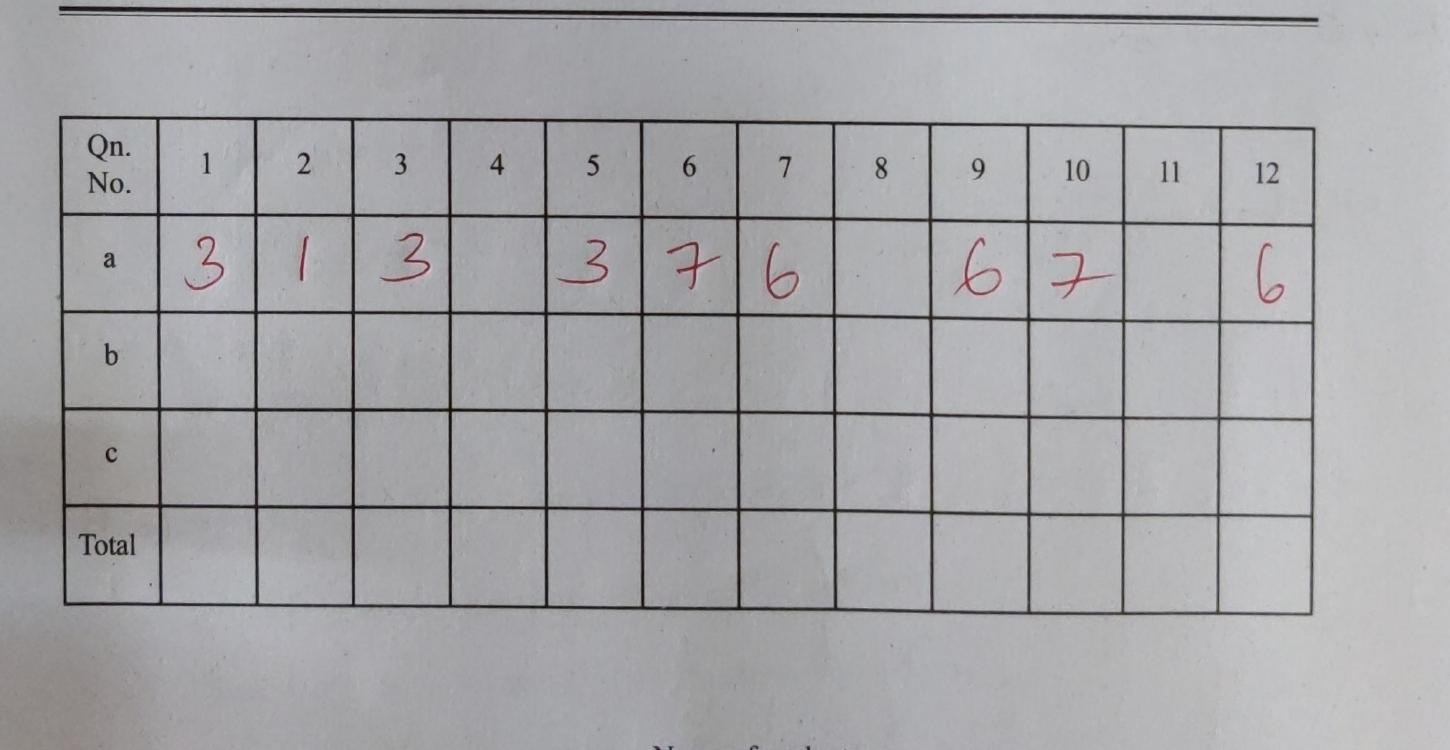 Qn. No. 1 2 3 4 5 6 7 8 9 10 11 12
a 3 1 3 3 7 6 6 7 6
b
c
Total